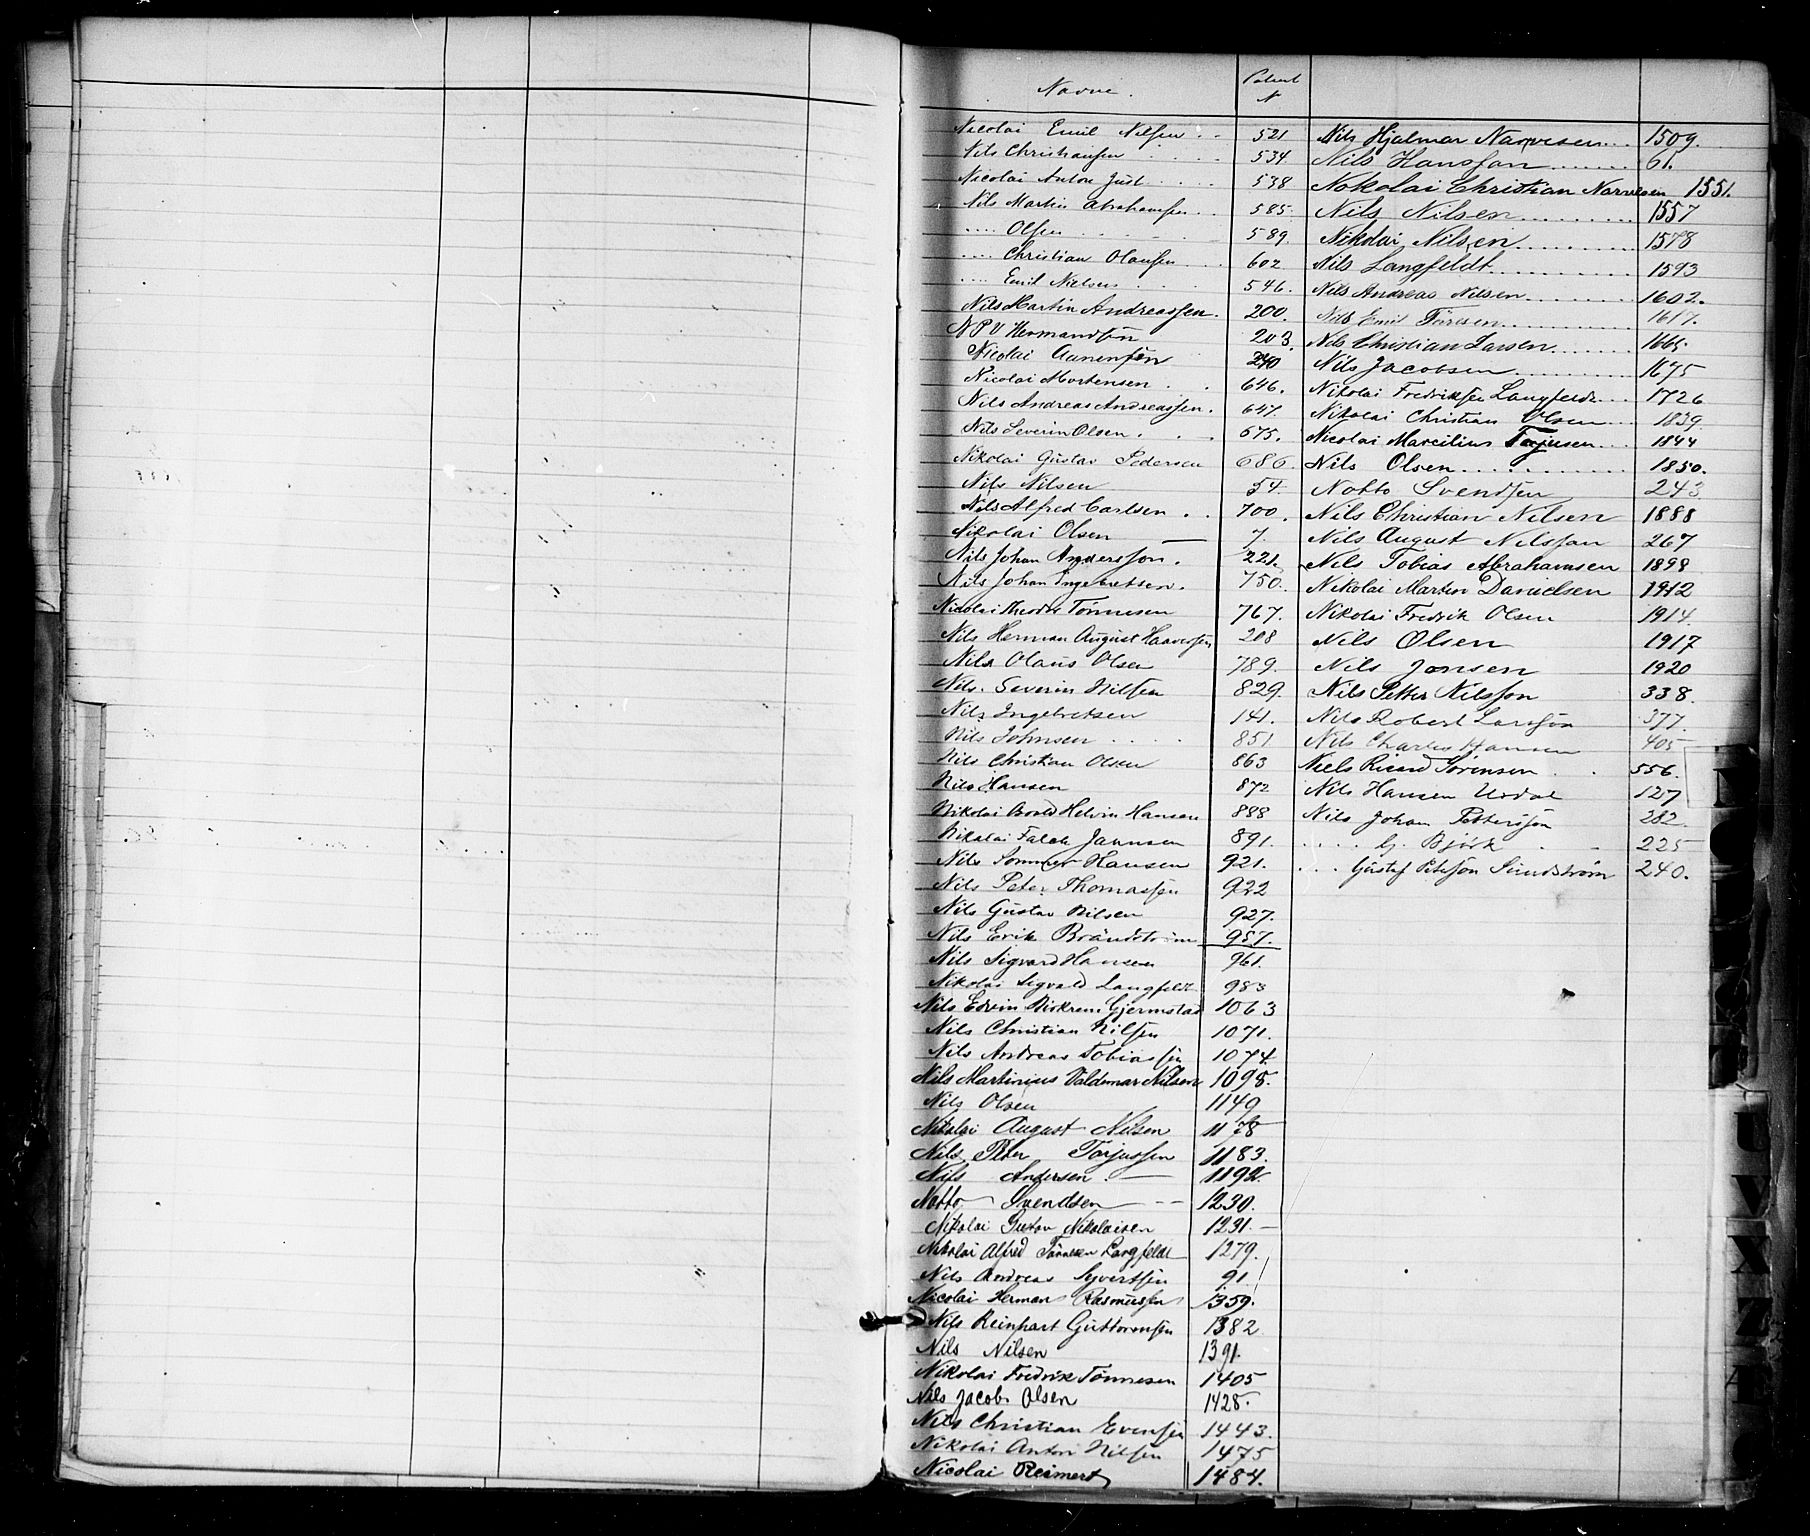 Navne.
Patent
N
Nicolai Emil Nilsen 521
Nils Christiansen 534
Nicolai Anton Just 538
Nils Martin Abrahamsen 585.
Olsen 589
Christian Olausen 602
Emil Nielsen 546.
Nils Martin Andreassen. 200.
N P V Hermandsen 203.
Nicolai Aanensen 240
Nicolai Mortensen 646.
Nils Andreas Andreassen. 647.
Nils Severin Olsen. 675.
Nikolai Gustav Pedersen 686.
Nils Nilsen 54.
Nils Alfred Carlsen 700.
Nikolai Olsen 7.
Nils Johan Andersson. 221.
Nils Johan Ingebretsen. 750.
Nicolai Theodor Tönnesen 767.
Nils Herman August Haaversen 208
Nils Olaus Olsen 789.
Nils. Severin Nilsen 829.
Nils Ingebretsen 141.
Nils Johnsen 851
Nils Christian Olsen 863
Nils Hansen 872
Nikolai Helvin Hansen 888
Nikolai Falck Jannsen 891.
Nils Sommer Hansen 921.
Nils Peter Thomassen 922
Nils Gustav Nilsen 927.
Nils Erik Brändström 957.
Nils Sigvard Hansen 961.
Nikolai Sigvald Langfeldt 983
Nils Edvin Birkrem Gjermstad 1063
Nils Christian Nilsen 1071.
Nils Andreas Tobiassen 1074.
Nils Martinius Valdemar Nilsen 1095.
Nils Olsen 1149
Nikolai August Nilsen 1178
Nils Peter Torjussen 1183.
Nils Andersen. 1192.
Notto Svendsen 1230.
Nikolai Gustav Nikolaisen 1231.
Nikolai Alfred Tönnesen Langfeldt 1279.
Nils Andreas Syvertsen 91.
Nicolai Herman Rasmussen 1359.
Nils Reinhart Guttormsen 1382
Nils Nilsen 1391.
Nikolai Fredrik Tönnesen 1405
Nils Jacob Olsen 1428.
Nils Christian Evensen 1443.
Nikolai Anton Nilsen 1475
Nicolai Reimert 1484.
Nils Hjalmar Narvesen 1509.
Nils Hansson 61.
Nokolai Christian Narvesen 1551.
Nils Nilsen 1557
Nikolai Nilsen 1578
Nils Langfeldt 1593
Nils Andreas Nilsen 1602.
Nils Emil 1617.
Nils Christian Larsen 1665.
Nils Jacobsen 1675
Nikolai Fredriksen Langfeldt 1726
Nikolai Christian Olsen 1839
Nicolai Marcilius Terjusen 1844
Nils Olsen 1850.
Notto Svendsen 243
Nils Christian Nilsen 1888
Nils August Nilsson 267
Nils Tobias Abrahamsen 1898
Nikolai Martin Danielsen 1912
Nikolai Fredrik Olsen 1914.
Nils Olsen 1917
Nils Jonsen 1920
Nils Petter Nilsson 338.
Nils Robert Larsson 377.
Nils Charles Hansen 405
Niels Ricard Sörensen 556.
Nils Hansen Urdal 127
Nils Johan Pettersson 282.
G. Björk 225
Gustaf Petersson Sundström 240.
U
V
X
Z